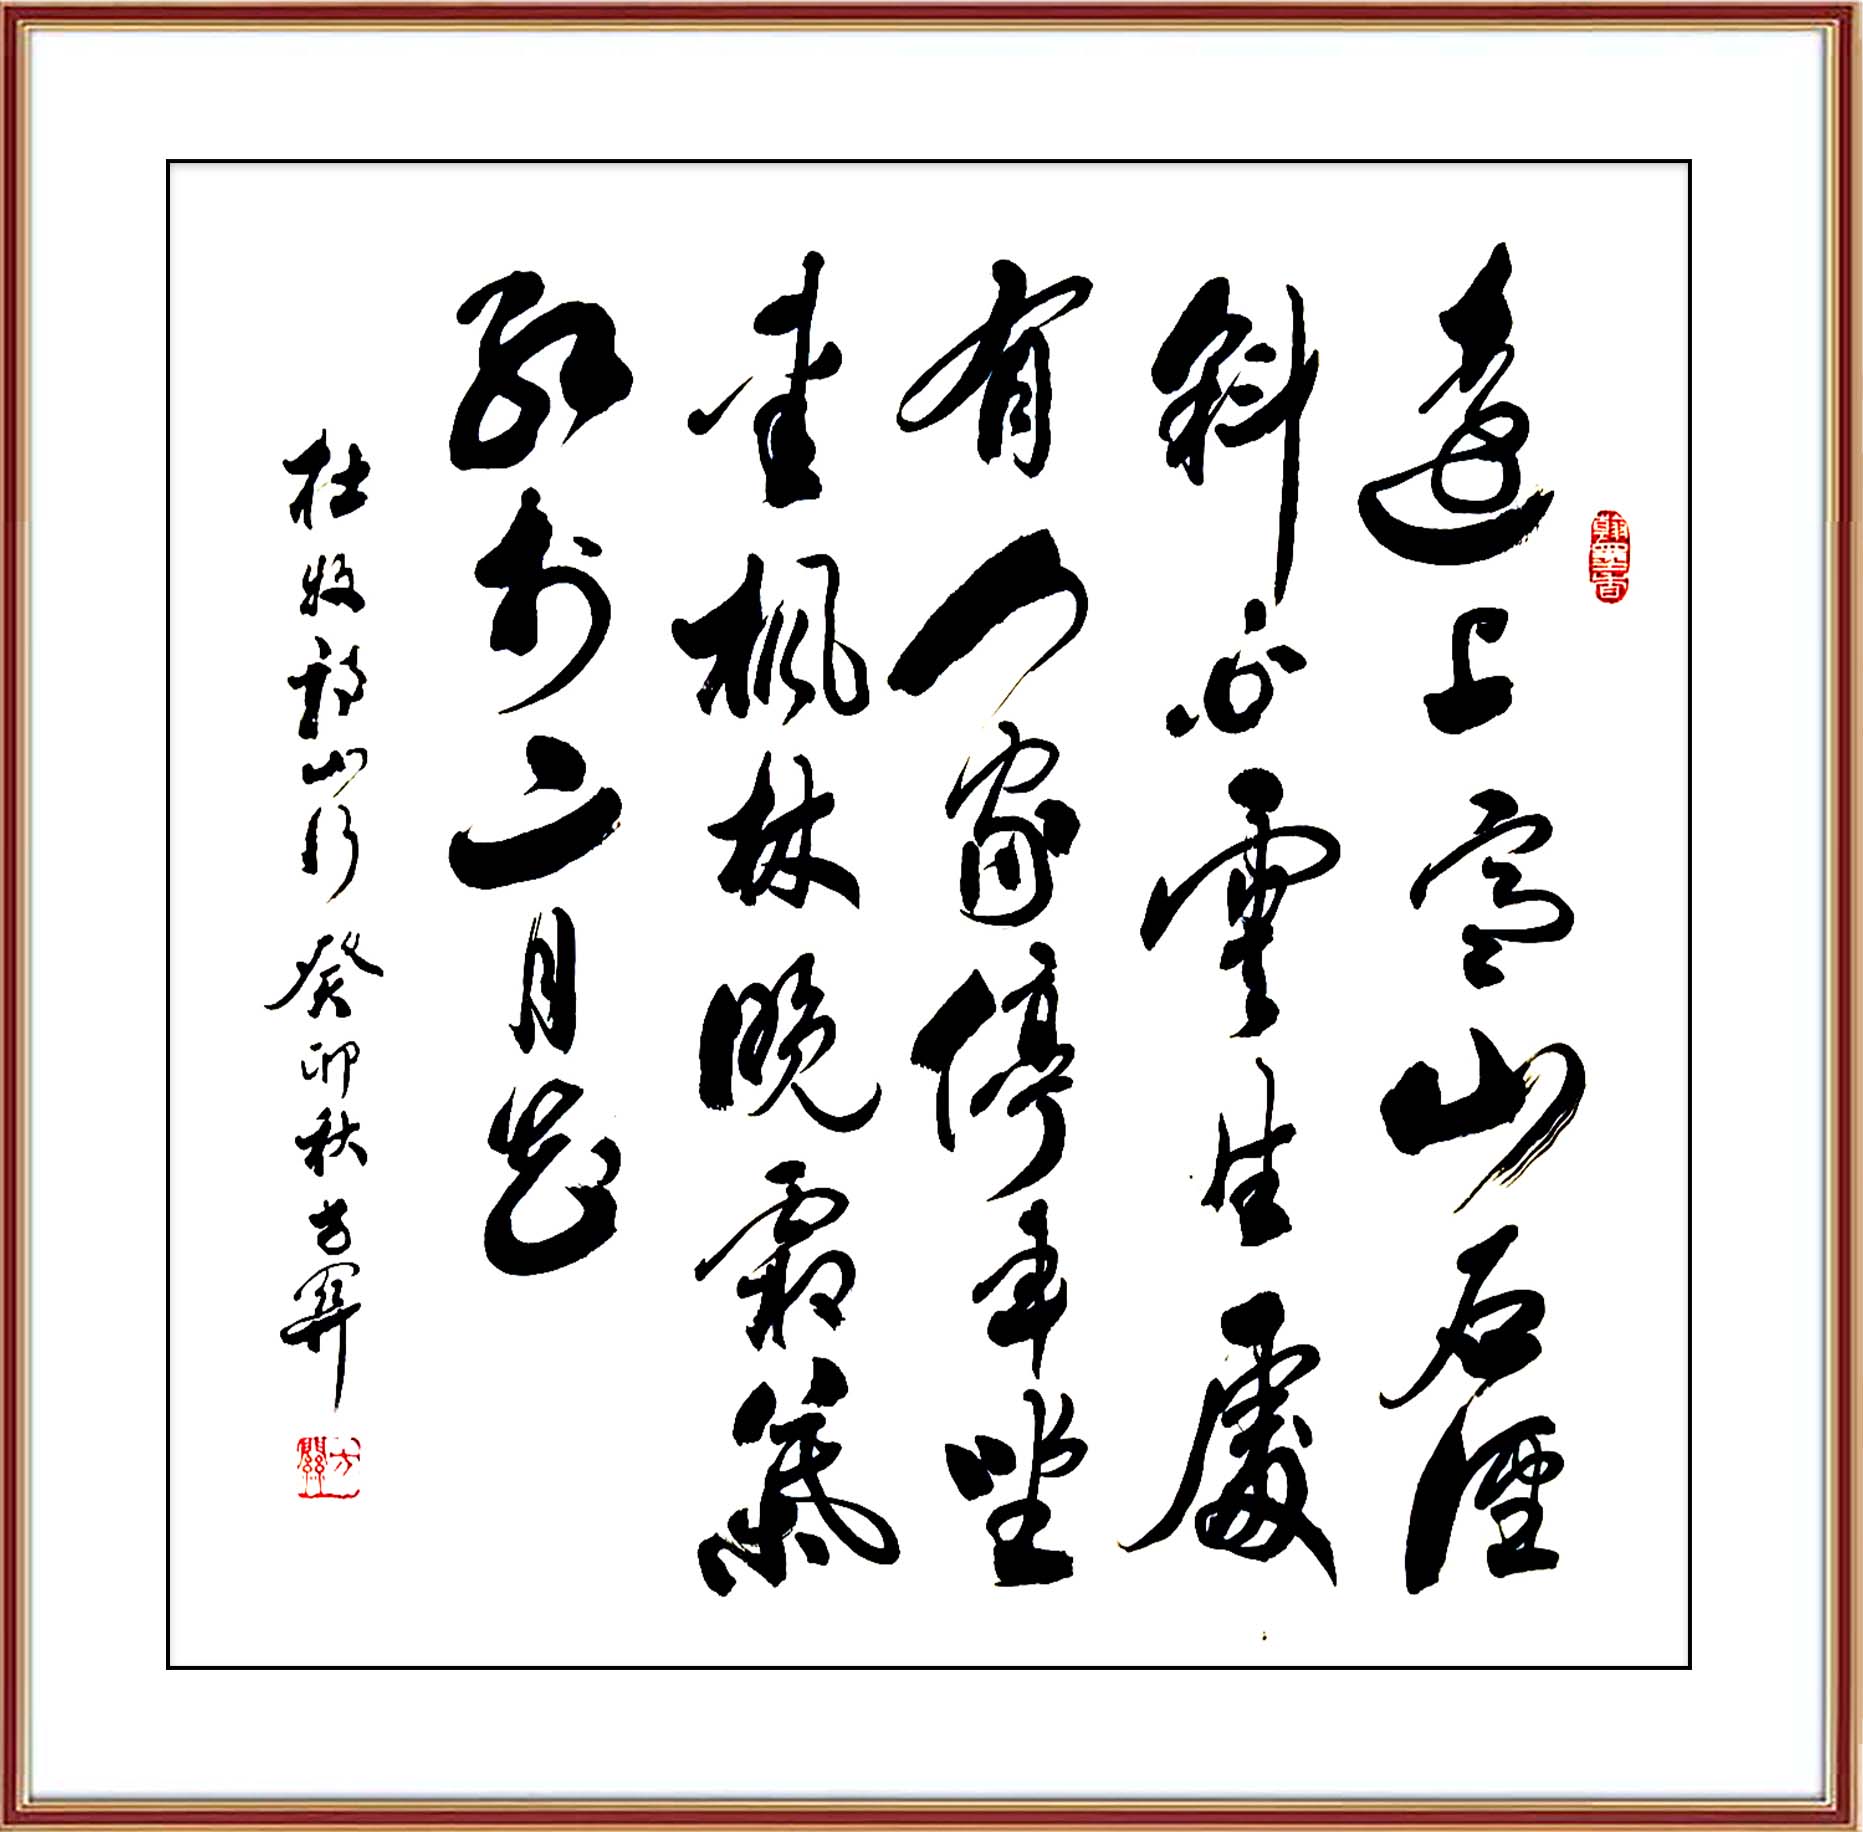 翰墨香
遠上寒山石徑
斜白雲生處
有人家停車坐
愛楓林晚霜葉
紅於二月花
杜牧詩山行 癸卯秋 方關
方關